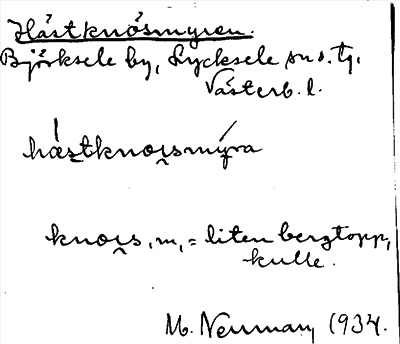 Hästknösmyren.
Björksele by, Lycksele sn o. tg.
Västerb. l.
hástknoı̯smýra
knoı̯s, m, = liten bergtopp,
kulle.
M. Neuman, 1934.